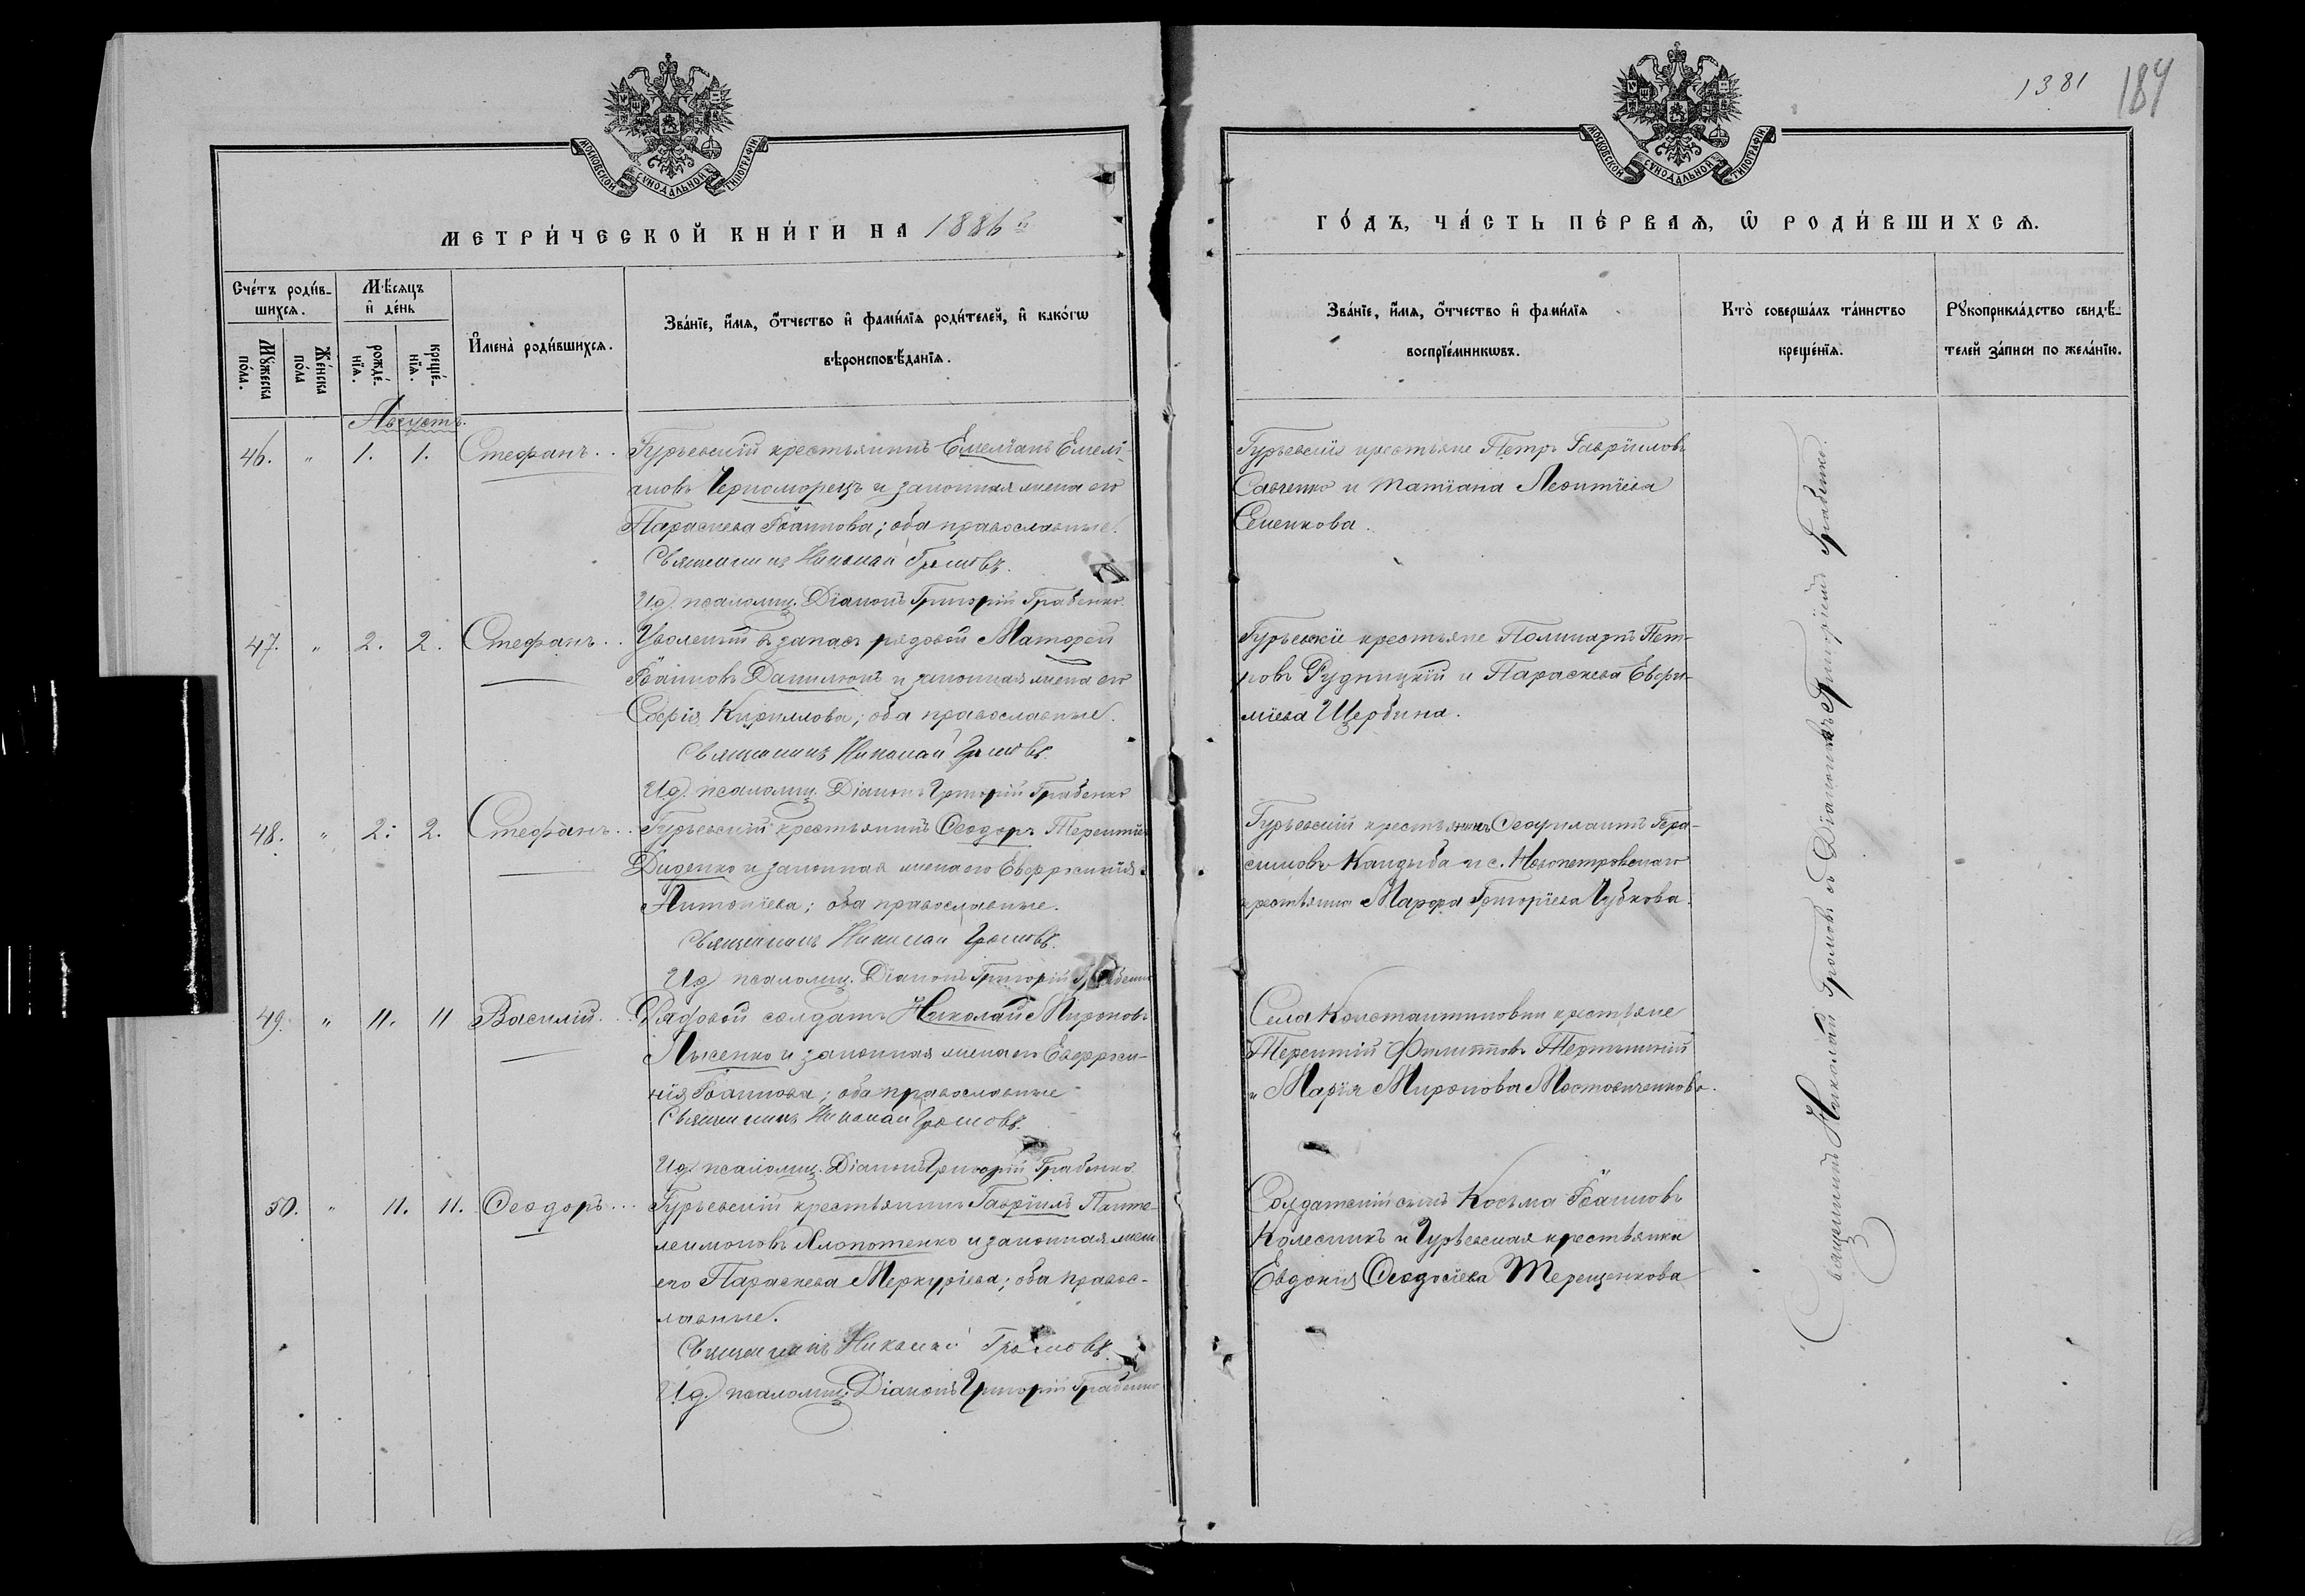 1381
184
МОСКОВСКОЙ СѴНОДАЛЬНОЙ ТИПОГРАФІИ
МОСКОВСКОЙ СѴНОДАЛЬНОЙ ТИПОГРАФІИ
МЕТРИ́ЧЕСКОЙ КНИ́ГИ НА 1886й
ГО́ДЪ, ЧА́СТЬ ПЕ́РВАѦ, Ѡ҆ РОДИ́ВШИХСѦ.
Сче́тъ роди́в-
шихсѧ.
Мꙋ́жеска по́ла.
Же́нска по́ла
Мѣ́сѧцъ
и҆ де́нь
рожде́-нїѧ.
креще́-нїѧ.
И҆мена̀ роди́вшихсѧ.
Зва́нїе, и҆́мѧ, ѻ҆́тчество и҆ фамі́лїѧ роди́телей, и҆ како́гѡ
вѣроисповѣ́данїѧ.
Зва́нїе, и҆́мѧ, ѻ҆́тчество и҆ фамі́лїѧ
воспрїе́мникѡвъ.
Кто̀ соверша́лъ та́инство
креще́нїѧ.
Рꙋкоприкла́дство свидѣ́-
телей за́писи по жела́нїю.
Августъ.
46. " 1. 1. Стефанъ.. Гурьевскій крестьянинъ Емеліанъ Емелі-
ановъ Черноморецъ и законная жена его
Параскева Іоаннова; оба православные.
Священникъ Николай Громовъ.
И.д. псаломщ. Діаконъ Григорій Грабенко.
Гурьевскіе крестьяне Петръ Гавріиловъ
Савченко и Татіана Леонтіева
Семенкова.
47. " 2. 2. Стефанъ.. Уволенный въ запасъ рядовой Матфей
Іоанновъ Данилюкъ и законная жена его
Софія Кириллова; оба православные.
Священникъ Николай Громовъ.
И.д. псаломщ. Діаконъ Григорій Грабенко
Гурьевскіе крестьяне Поликарпъ Пет-
ровъ Рудницкій и Параскева Евфи-
міева Щербина.
48. " 2. 2. Стефанъ.. Гурьевскій крестьянинъ Ѳеодоръ Терентіев
Диденко и законная жена его Евфросинія
Антоніева; оба православные.
Священникъ Николай Громовъ.
И.д. псаломщ. Діаконъ Григорій Грабенко
Гурьевскій крестьянинъ Ѳеофилактъ Гера-
симовъ Кандыба и с. Новопетровскаго
крестьянка Марфа Григоріева Чубкова.
49. " 11. 11 Василій. Рядовой солдатъ Николай Мироновъ
Лысенко и законная жена его Евфроси-
нія Іоаннова; оба православные
Священникъ Николай Громовъ.
И.д. псаломщ. Діаконъ Григорій Грабенко
Села Константиновки крестьяне
Терентій Филипповъ
и Марія Миронова Мостовиченкова.
50. " 11. 11. Ѳеодоръ... Гурьевскій крестьянинъ Гавріилъ Панте-
леимоновъ Клопотенко и законная жена
его Параскева Меркуріева; оба правос-
лавные.
Священникъ Николай Громовъ.
И.д. псаломщ. Діаконъ Григорій Грабенко
Солдатскій сынъ Косьма Іоанновъ
Колесникъ и Гурьевская крестьянка
Евдокія Ѳеодосіева Терещенкова
Священникъ Николай Громовъ съ Діакономъ Григоріемъ Грабенко.